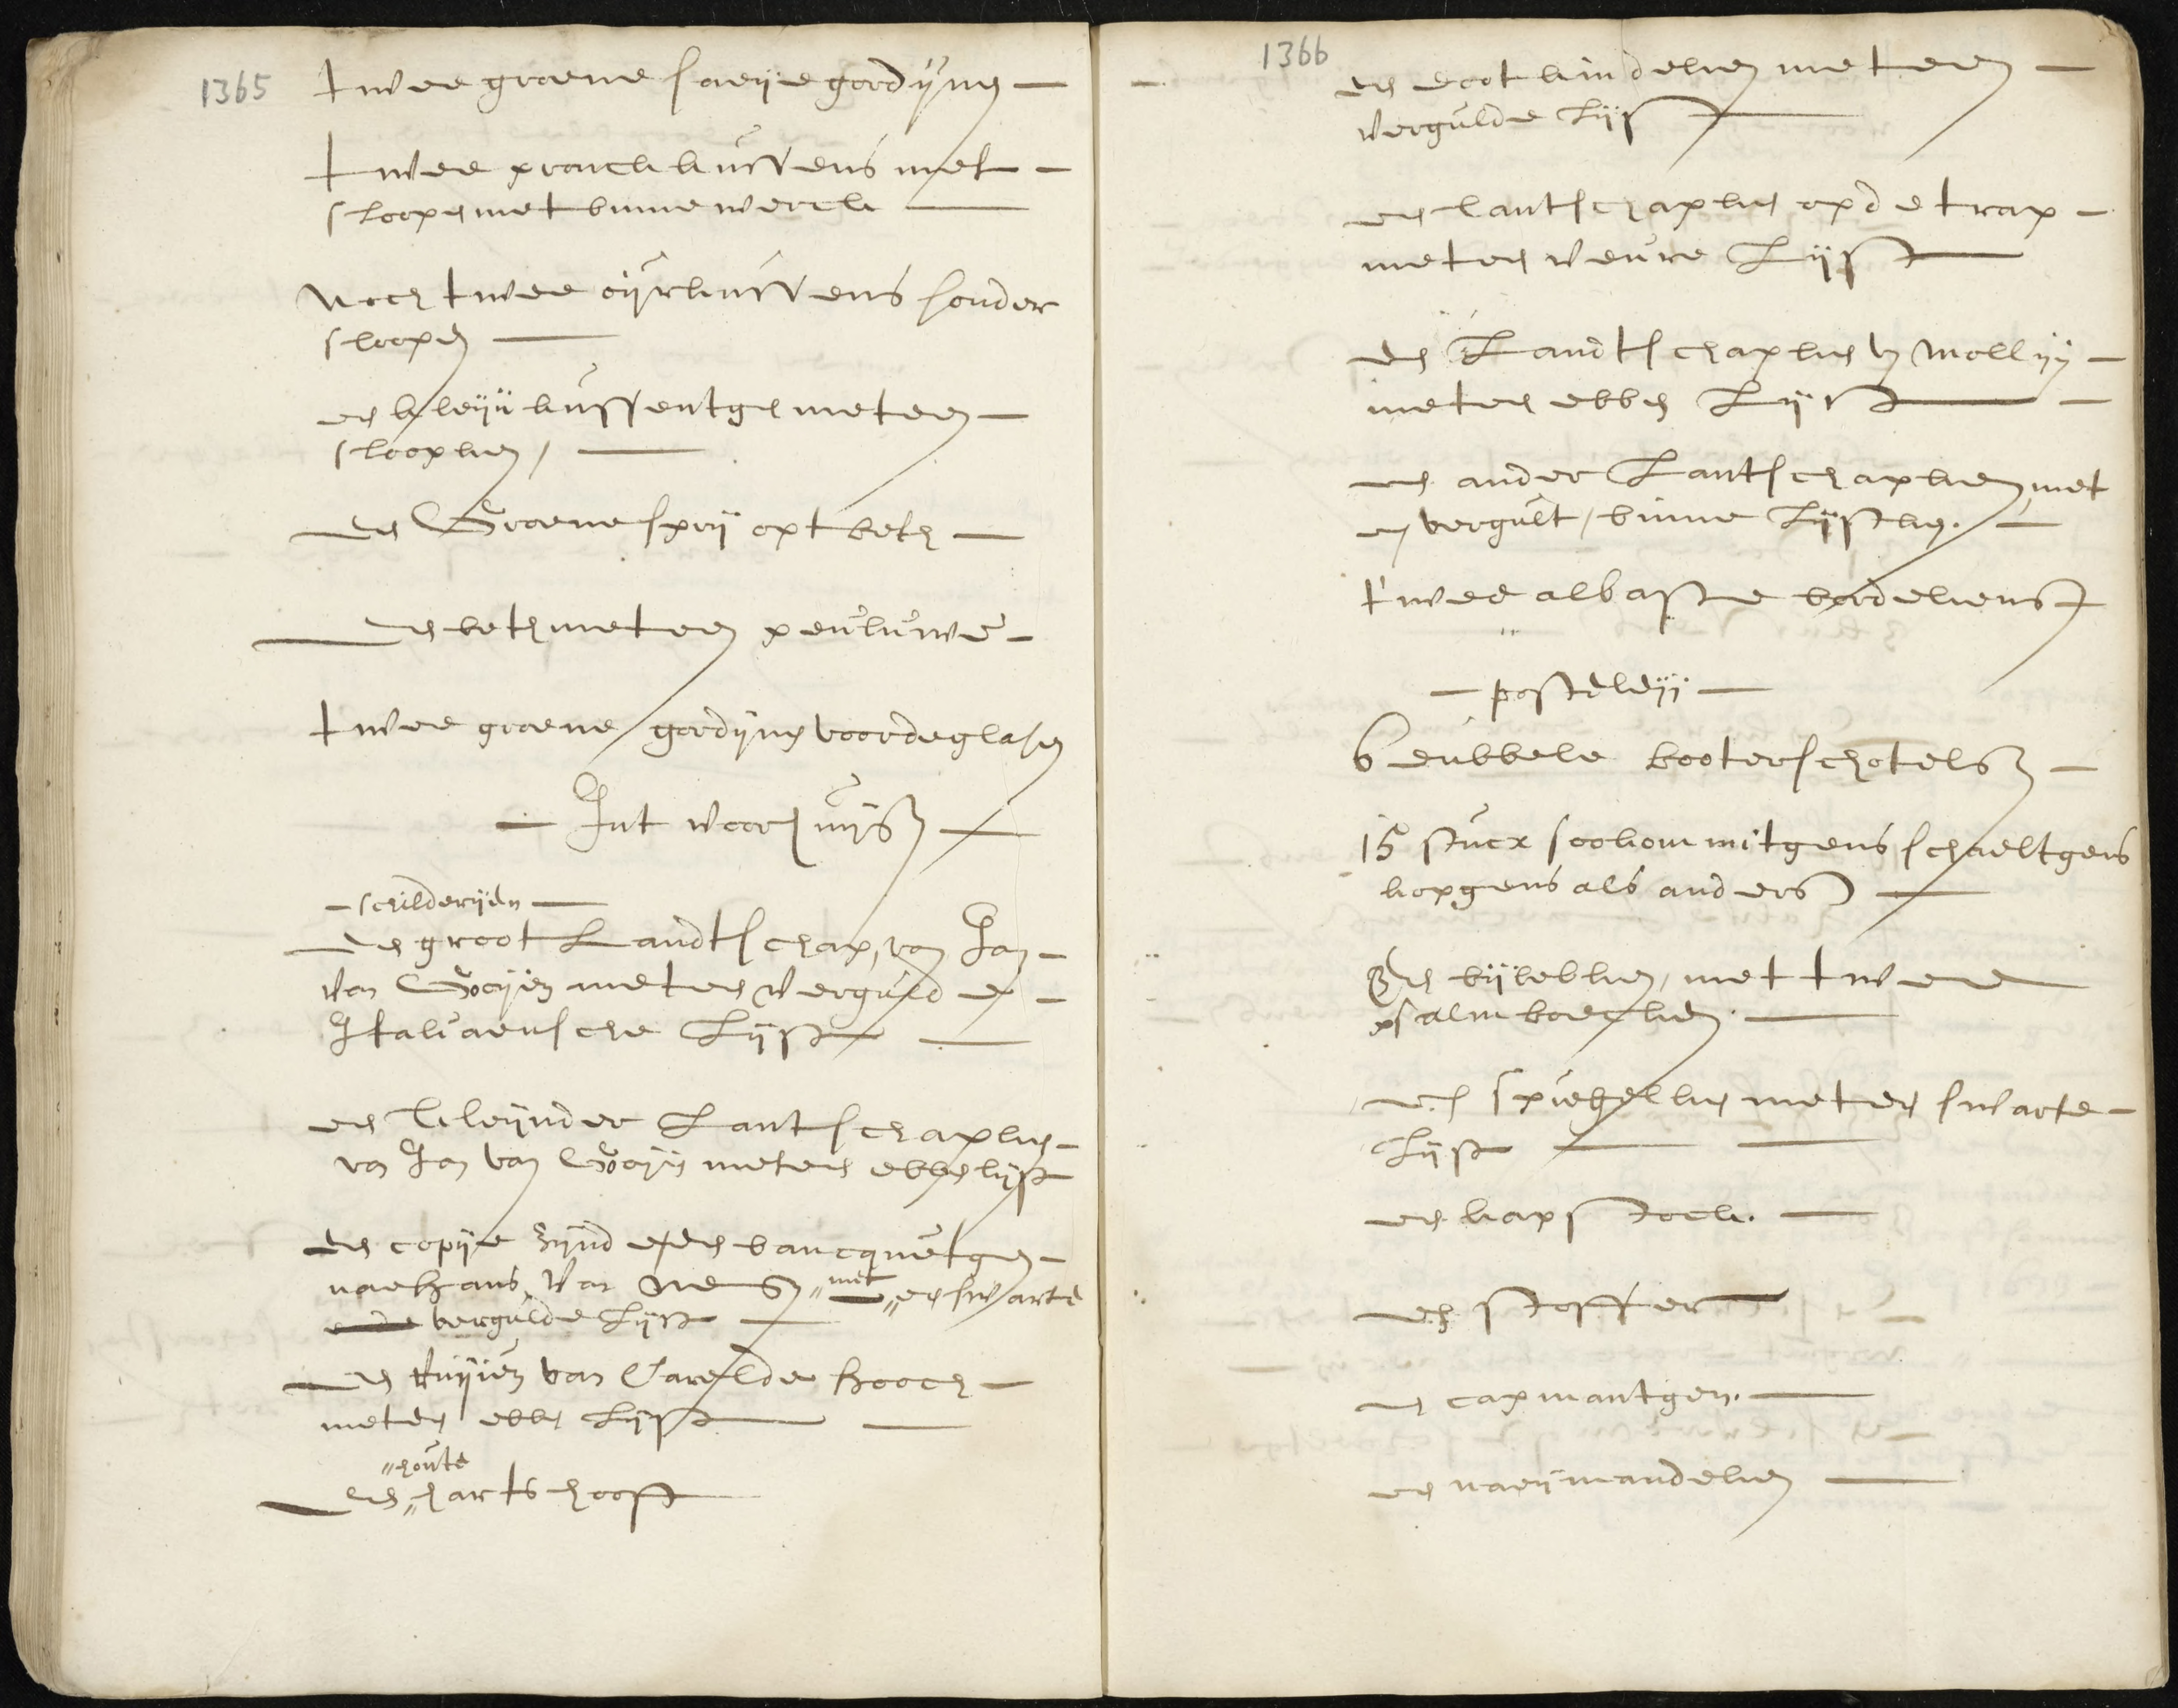 1365
twee groene saeije gordijnen
twee pronck kussens met
sloopen met binnewerck
noch twee oirkussens sonder
sloopen
een kleijn kussentge met een
sloopken /
een Groene sprij opt beth
een beth met een peuluwe
twee groene gordijnen voor de glasen
Int voorhuijs
schilderijen
een groot Landtschap, van Jan
van Goijen met een vergulde
Italiaensche Lijst
een kleijnder Lantschapken
van Jan van Goijen met een ebben lijst
een copije zijnde een bancquetge
nae Hans van Nes met een swarte
ende vergulde Lijst
een Ruijne van Carel de Hooch
met een ebben Lijst
houte
een harts hooft
1366
een doot kindeken met een
vergulde Lijst
een lantschapken op de trap
met een veure Lijst
een Landtschapken van Mollijn
met een ebben Lijst
een ander Lantschapken met
een vergult / binne Lijstken.
twee albaste bordekens
posteleijn
6 dubbele booterschotels
15 stucx soo kommitgens schaeltgens
kopgens als anders
Een bijbelken, met twee
psalmboecken.
een spiegelken met een swarte
Lijst
een kapstock.
een stoffer
een capmantgen.
een naeijmandeken